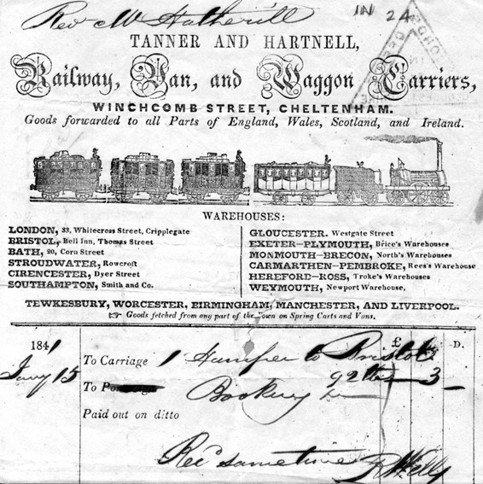 Revd Mr Hatherill
IN 24
TANNER AND HARTNELL,
Railway, Van, and Waggon Carriers,
WINCHCOMB STREET, CHELTENHAM.
Goods forwarded to all Parts of England, Wales, Scotland, and Ireland.
WAREHOUSES:
LONDON, 33, Whitecross Street, Cripplegate
BRISTOL, Bell Inn, Thomas Street
BATH, 20, Corn Street
STROUDWATER, Rowcroft
CIRENCESTER, Dyer Street
SOUTHAMPTON, Smith and Co.
GLOUCESTER. Westgate Street
EXETER—PLYMOUTH, Brice's Warehouse
MONMOUTH—BRECON, North's Warehouses
CARMARTHEN—PEMBROKE, Rees's Warehouse
HEREFORD—ROSS, Troke's Warehouses
WEYMOUTH, Newport Warehouse,
TEWKESBURY, WORCESTER, BIRMINGHAM, MANCHESTER, AND LIVERPOOL.
Goods fetched from any part of the Town on Spring Carts and Vans.
1841 £ D.
Jany 15 To Carriage 1 Hamper to Bristol
To 92 lbs 3
Booking
Paid out on ditto
Recd same time